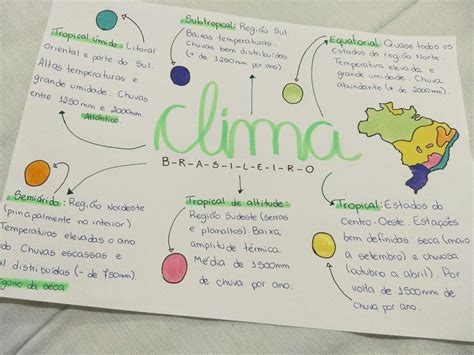 Tropical Úmido: Litoral
Oriental e parte do Sul.
Altas temperaturas e
grande umidade. Chuvas
entre 1250mm e 2000mm.
Atlântico
Subtropical: Região Sul
Baixas temperaturas.
Chuvas bem distribuídas
(+ de 1250mm por ano).
Equatorial: Quase todos os
Estados da região Norte.
Temperatura elevada, e
grande umidade. Chuva
abundante (+ de 2000mm).
clima
B-R-A-S-I-L-E-I-R-O
Semiárido: Região Nordeste
(principalmente no interior)
Temperaturas elevadas o ano
Chuvas escassas e
distribuídas (- de 750mm).
da seca
Tropical de altitude:
Região Sudeste (serras
e planaltos). Baixa
amplitude térmica.
Média de 1500mm
de chuva por ano.
Tropical: Estados do
Centro-Oeste. Estações
bem definidas seca (maio
a setembro) e chuvosa
(outubro a abril). Por
volta de 1500mm de
chuva por ano.